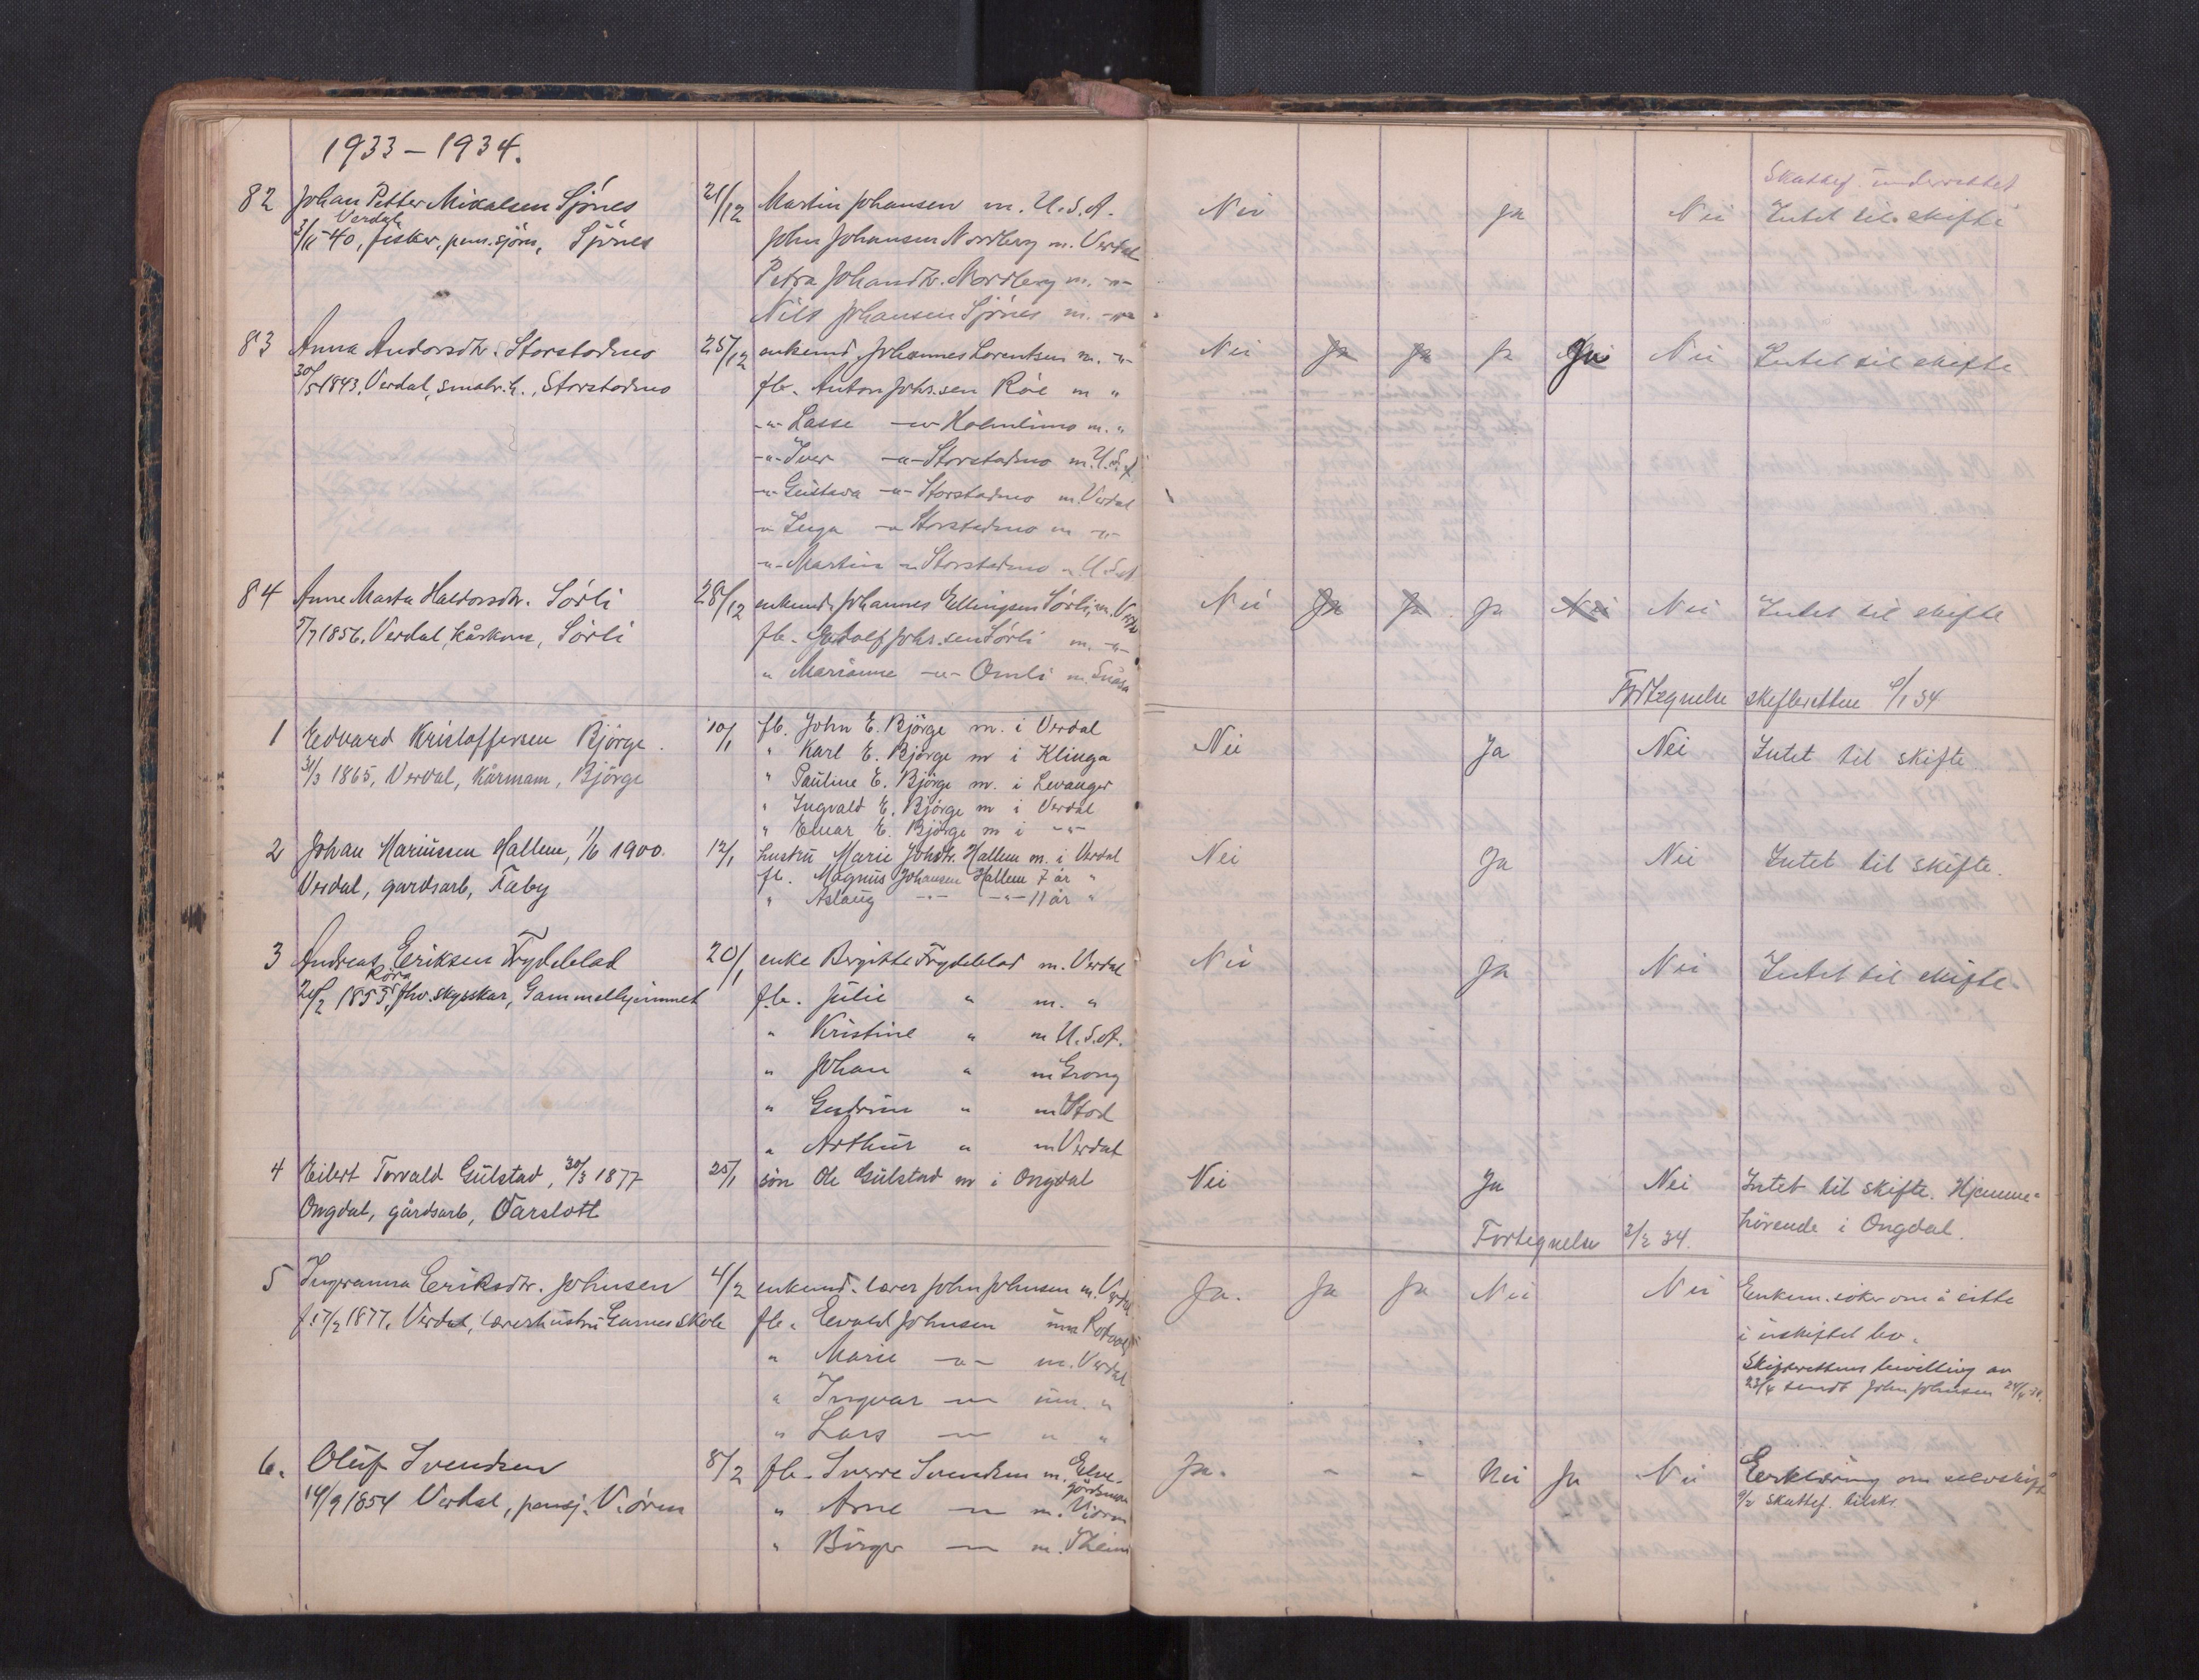 1933 – 1934.
Skattef. underrettet
82 Johan Petter Mikalsen Sjönes 21/12 Martin Johansen m. U.S.A. Nei Ja Nei Intet til skifte
Verdal
3/11 40, fisker, pens. sjöm, Sjönes John Johansen Nordberg m. Verdal
Petra Johansdtr. Nordberg m. -"-
Nils Johansen Sjönes m. -"-
83 Anna Andorsdtr. Storstadmo 25/12 enkemd. Johannes Lorentsen m. -"- Nei Ja Ja Ja Ja Nei Intet til skifte
30/5 1843. Verdal, smabr.h., Storstadmo fb. Anton Johs.sen Röe m "
-"- Lasse -"- Holmlimo m. "
-"- Iver -"- Storstadmo m. U.S.A.
-"- Gustava -"- Storstadmo m. Verdal
-"- Inga -"- Storstadmo m -"-
-"- Martin -"- Storstadmo -"- U.S.A
84 Anne Marta Haldorsdtr. Sörli 28/12 enkemd. Johannes Ellingsen Sörli, m. Verdal Nei Ja Ja Ja Nei Nei Intet til skifte
5/7 1856. Verdal, kårkone, Sörli fb. Gudolf Johs.sen Sörli m. -"-
" Marianne -"- Omli m. Snåsa
Fortegnelse skifteretten 6/1 34
1 Edvard Kristoffersen Björge. 10/1 fb. John E. Björge m. i Verdal Nei Ja Nei Intet til skifte.
31/3 1865, Verdal, kårmann, Björge " Karl E. Björge m i Klinga
" Pauline E. Björge m. i Levanger
" Ingvald E. Björge m i Verdal
" Einar E. Björge m i -"-
2 Johan Mariussen Hallem, 1/6 1900. 12/1 hustru Marie Johsdtr. Hallem m. i Verdal Nei Ja Nei Intet til skifte.
Verdal, gardsarb, Faby fb. Magnus Johansen Hallem 7 år "
" Aslaug -"- -"- 11 år "
3 Andreas Eriksen Frydeblad 20/1 enke Bergitte Frydeblad m. Verdal Nei Ja Nei Intet til skifte
Röra
20/2 1855, fhv. skysskar, Gammelhjemmet fb. Julie " m. "
" Kristine " m U.S.A.
" Johan " m Grong
" Gudrun " m Stod
" Arthur " m Verdal
4 Eilert Torvald Gulstad, 30/3 1877 25/1 sön Ole Gulstad m i Ongdal Nei Ja Nei Intet til skifte. Hjemme-
Ongdal, gårdsarb, Varslott hörende i Ongdal.
Fortegnelse 3/2 34.
5 Ingeranna Eriksdtr. Johnsen 4/2 enkemd. lærer John Johnsen m. Verdal Ja. Ja Ja Nei Nei Enkem. söker om å sitte
f. 17/2 1877. Verdal, lærerhustru Garnes skole fb. Edvald Johnsen um i uskiftet bo.
" Marie -"- m. Verdal Skifterettens bevilling av
23/4 sendt John Johnsen 24/4 34.
" Ingvar -"- um. "
" Lars -"- " "
6. Oluf Svendsen 8/2 fb. Sverre Svendsen m. Elve- Ja. - - Nei Ja Nei Erklæring om selvskifte
gårdsmoen
14/9 1854 Verdal, pensj. V.ören " Arne -"- m. V.ören 9/2 Skattef. tilskr.
" Birger -"- m. Theim